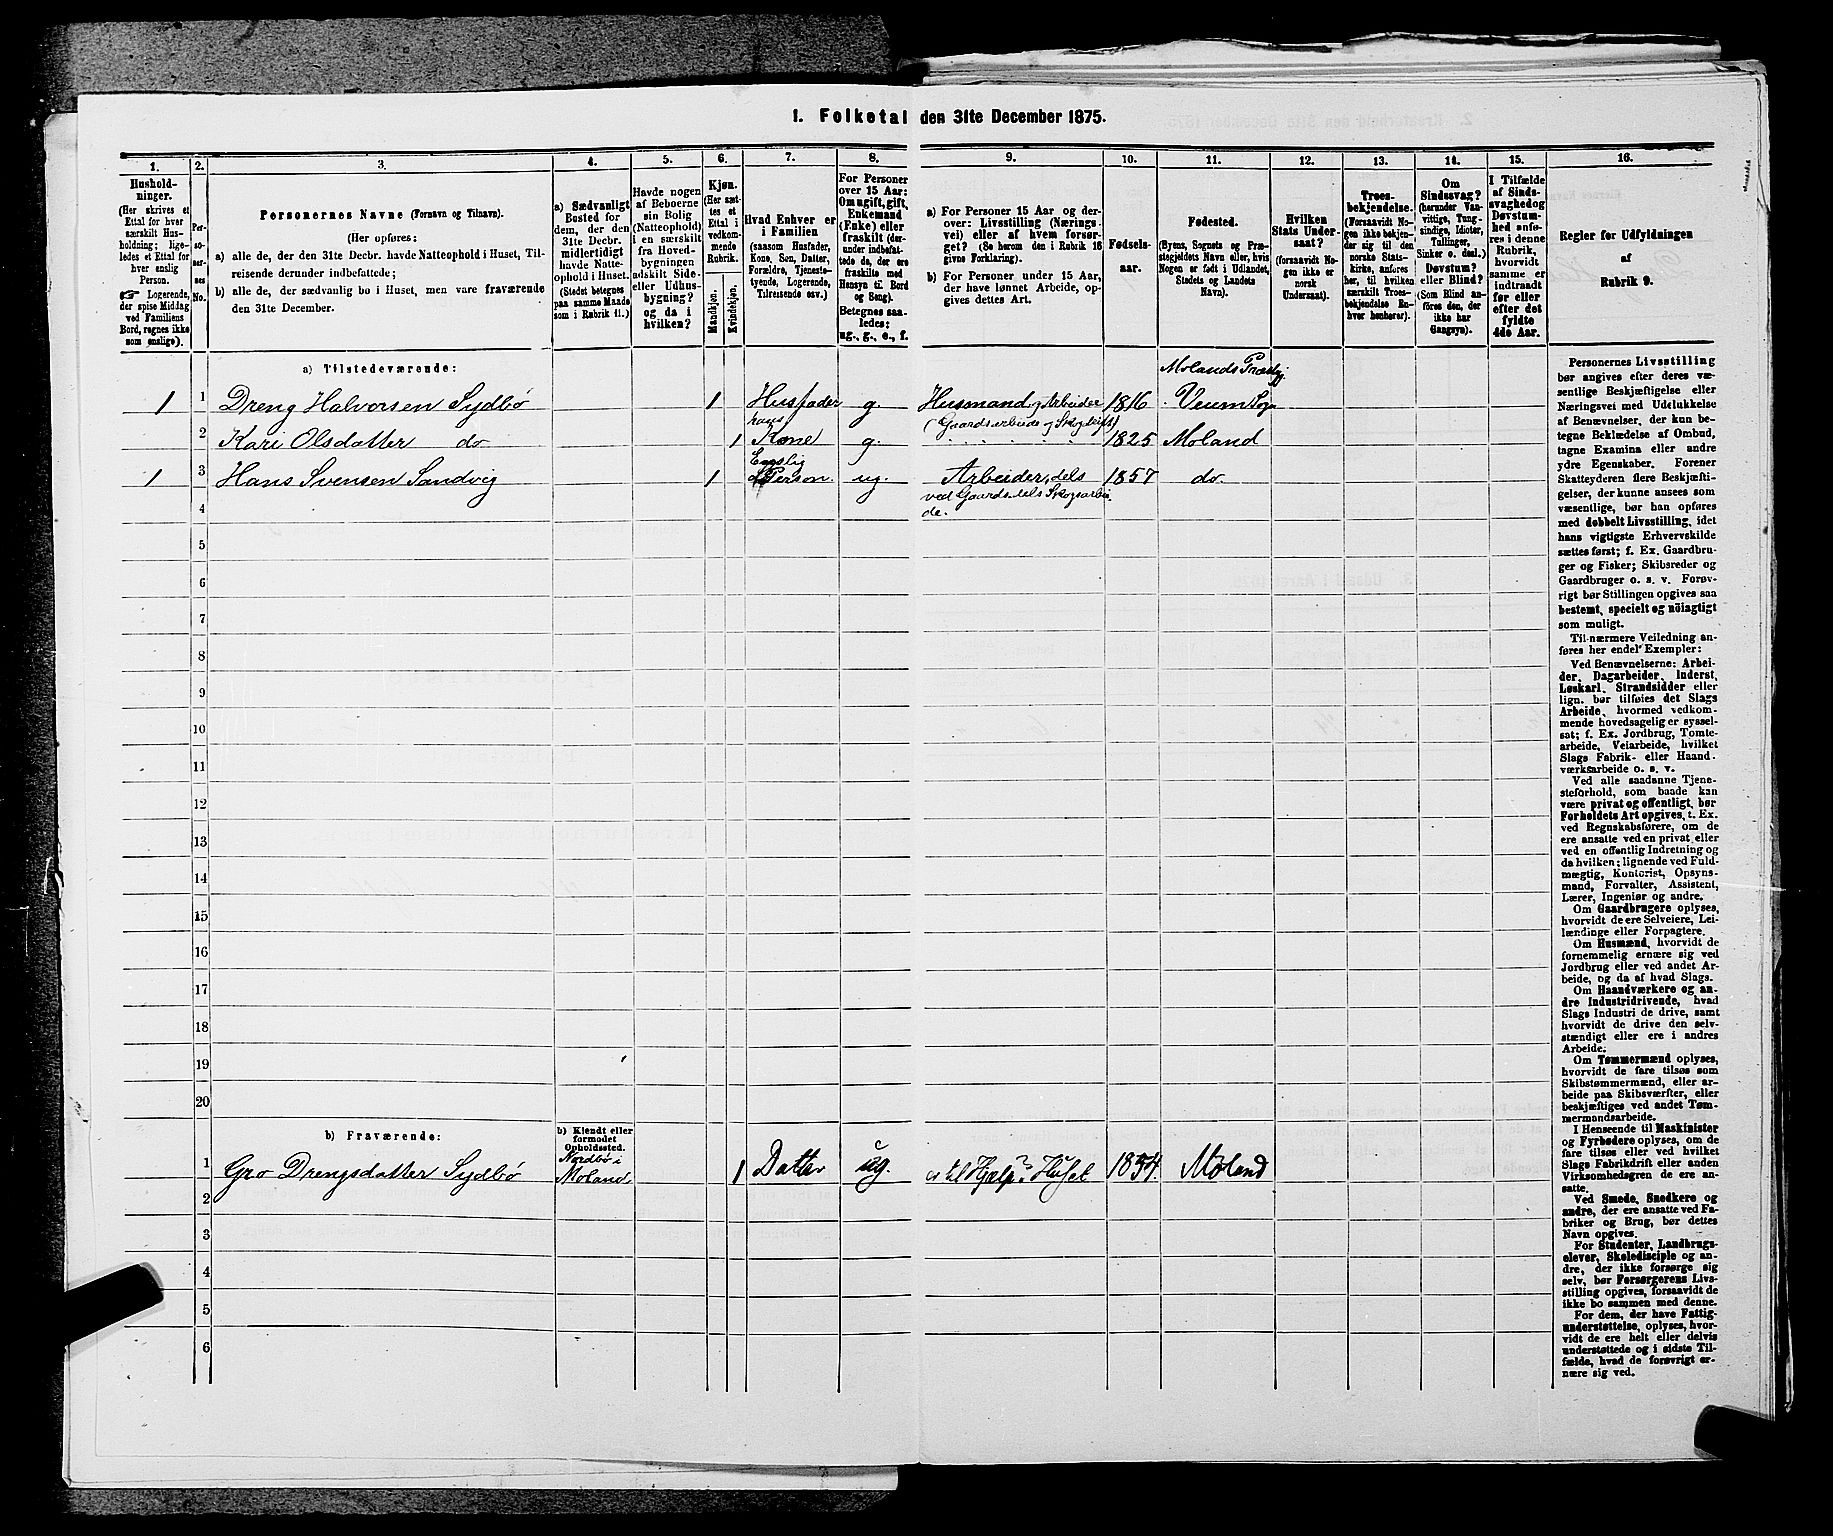 1. Folketal den 31te December 1875.
1. 2. 3. 4. 5. 6. 7. 8. 9. 10. 11. 12. 13. 14. 15. 16.
Hushold-
ninger.
(Her skrives et
Ettal for hver
særskilt Hus-
holdning; lige-
ledes et Ettal for
hver enslig
Person.
☞ Logerende,
der spise Middag
ved Familiens
Bord, regnes ikke
som enslige).
Per-
so-
ner-
nes
No.
Personernes Navne (Fornavn og Tilnavn).
(Her opføres:
a) alle de, der den 31te Decbr. havde Natteophold i Huset, Til-
reisende derunder indbefattede;
b) alle de, der sædvanlig bo i Huset, men vare fraværende
den 31te December.
a) Sædvanligt
Bosted for
dem, der den
31te Decbr.
midlertidigt
havde Natte-
ophold i Huset.
(Stedet betegnes
paa samme Maade
som i Rubrik 11.)
Havde nogen
af Beboerne
sin Bolig
(Natteophold)
i en særskilt
fra Hoved-
bygningen
adskilt Side-
eller Udhus-
bygning? og da i
hvilken?
Kjøn.
(Her sæt-
tes et
Ettal i
vedkom-
mende
Rubrik.
Mandkjøn.
Kvindekjøn.
Hvad Enhver er
i Familien
(saasom Husfader,
Kone, Søn, Datter,
Forældre, Tjeneste-
tyende, Logerende,
Tilreisende osv.)
For Personer
over 15 Aar:
Om ugift, gift,
Enkemand
(Enke) eller
fraskilt (der-
under indbefat-
tede de, der ere
fraskilte med
Hensyn til Bord
og Seng).
Betegnes saa-
ledes:
ug., g., e., f.
a) For Personer 15 Aar og der-
over: Livsstilling (Nærings-
vei) eller af hvem forsør-
get? (Se herom den i Rubrik 16
givne Forklaring).
b) For Personer under 15 Aar,
der have lønnet Arbeide, op-
gives dettes Art.
Fødsels-
aar.
Fødested.
(Byens, Sognets og Præ-
stegjeldets Navn eller, hvis
Nogen er født i Udlandet,
Stedets og Landets
Navn).
Hvilken
Stats Under-
saat?
(forsaavidt No-
gen ikke er
norsk
Undersaat).
Troes-
bekjendelse.
(Forsaavidt No-
gen ikke bekjen-
der sig til den
norske Stats-
kirke, anføres
her, til hvilken
særskilt Troes-
bekjendelse En-
hver henhører).
Om
Sindssvag?
(herunder Van-
vittige, Tung-
sindige, Idioter,
Tullinger,
Sinker o. desl.)
Døvstum?
eller Blind?
(Som Blind an-
føres den, der
ikke har
Gangsyn).
I Tilfælde
af Sinds-
svaghed og
Døvstum-
hed anfø-
res i denne
Rubrik,
hvorvidt
samme er
indtraadt
før eller
efter det
fyldte
4de Aar.
Regler for Udfyldningen
af
Rubrik 9.
a) Tilstedeværende:
Molands Præstgj.
1 1 Dreng Halvorsen Sydbø 1 Husfader g. Husmand og Arbeider 1816 Veum Sogn
(Gaardsarbeide og Skogbrift)
2 Kari Olsdatter do 1 hans Kone g. 1825 Moland
1 3 Hans Svensen Sandvig 1 Enslig Person. ug. Arbeider, dels 1857 do.
ved Gaards, dels Skogsarbei-
de.
4
5
6
7
8
9
10
11
12
13
14
15
16
17
18
19
20
b) Fraværende:
b) Kjendt eller
formodet
Opholdssted.
1 Gro Drengsdatter Sydbø Nordbø i Moland 1 Datter ug. er til Hjælp i Huset 1854. Moland
2
3
4
5
6
Personernes Livsstilling
bør angives efter deres væ-
sentlige Beskjæftigelse eller
Næringsvei med Udelukkelse
af Benævnelser, der kun be-
tegne Beklædelse af Ombud,
tagne Examina eller andre
ydre Egenskaber. Forener
Skatteyderen flere Beskjæfti-
gelser, der kunne ansees som
væsentlige, bør han opføres
med dobbelt Livsstilling, idet
hans vigtigste Erhvervskilde
sættes først; f. Ex. Gaardbru-
ger og Fisker; Skibsreder og
Gaardbruger o. s. v. Forøv-
rigt bør Stillingen opgives saa
bestemt, specielt og nöiagtigt
som muligt.
Til nærmere Veiledning an-
føres her endel Exempler:
Ved Benævnelserne: Arbei-
der, Dagarbeider, Inderst,
Løskarl, Strandsidder eller
lign. bør tilføies det Slags
Arbeide, hvormed vedkom-
mende hovedsagelig er syssel-
sat; f. Ex. Jordbrug, Tomte-
arbeide, Veiarbeide, hvilket
Slags Fabrik- eller Haand-
værksarbeide o. s. v.
Ved alle saadanne Tjene-
steforhold, som baade kan
være privat og offentligt, bør
Forholdets Art opgives, t. Ex.
ved Regnskabsførere, om de
ere ansatte ved en privat eller
ved en offentlig Indretning og
da hvilken; lignende ved Fuld-
mægtig, Kontorist, Opsyns-
mand, Forvalter, Assistent,
Lærer, Ingeniør og andre.
Om Gaardbrugere oplyses,
hvorvidt de ere Selveiere, Lei-
lændinge eller Forpagtere.
Om Husmænd, hvorvidt de
fornemmelig ernære sig ved
Jordbrug eller ved andet Ar-
beide, og da af hvad Slags.
Om Haandværkere og an-
dre Industridrivende, hvad
Slags Industri de drive, samt
hvorvidt de drive den selv-
stændigt eller ere i andres
Arbeide.
Om Tømmermænd oplyses,
hvorvidt de fare tilsøs som
Skibstømmermænd, eller ar-
beide paa Skibsværfter, eller
beskjæftiges ved andet Tøm-
mermandsarbeide.
I Henseende til Maskinister
og Fyrbødere oplyses, om de
fare tilsøs eller ved hvilket
Slags Fabrikdrift eller anden
Virksomhedsgren de ere an-
satte.
Ved Smede, Snedkere og
andre, der ere ansatte ved Fa-
briker og Brug, bør dettes
Navn opgives.
For Studenter, Landbrugs-
elever, Skoledisciple og an-
dre, der ikke forsørge sig
selv, bør Forsørgerens Livs-
stilling opgives, forsaavidt de
ikke bo sammen med denne.
For dem, der have Fattig-
understøttelse, oplyses, hvor-
vidt de ere helt eller delvis
understøttede og i sidste Til-
fælde, hvad de forøvrigt er-
nære sig ved.